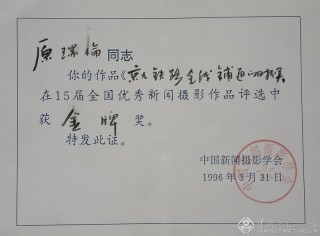 原瑞倫 同志
你的作品《京九铁路全线铺通的报道
在15届全国优秀新闻摄影作品评选中
获 金牌 奖。
特发此证。
中国新闻摄影学会
1996年3月31日